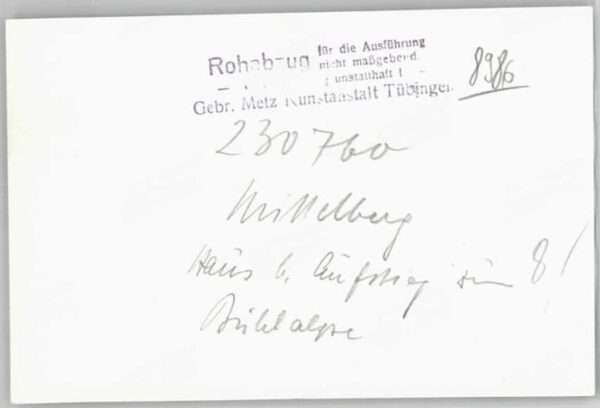 Rohabzug für die Ausführung
nicht maßgebend.
Gebr. Metz Kunstanstalt Tübingen
8986
230760
Mittelberg
Haus b. Aufstieg zur 8!
Bühlalpe